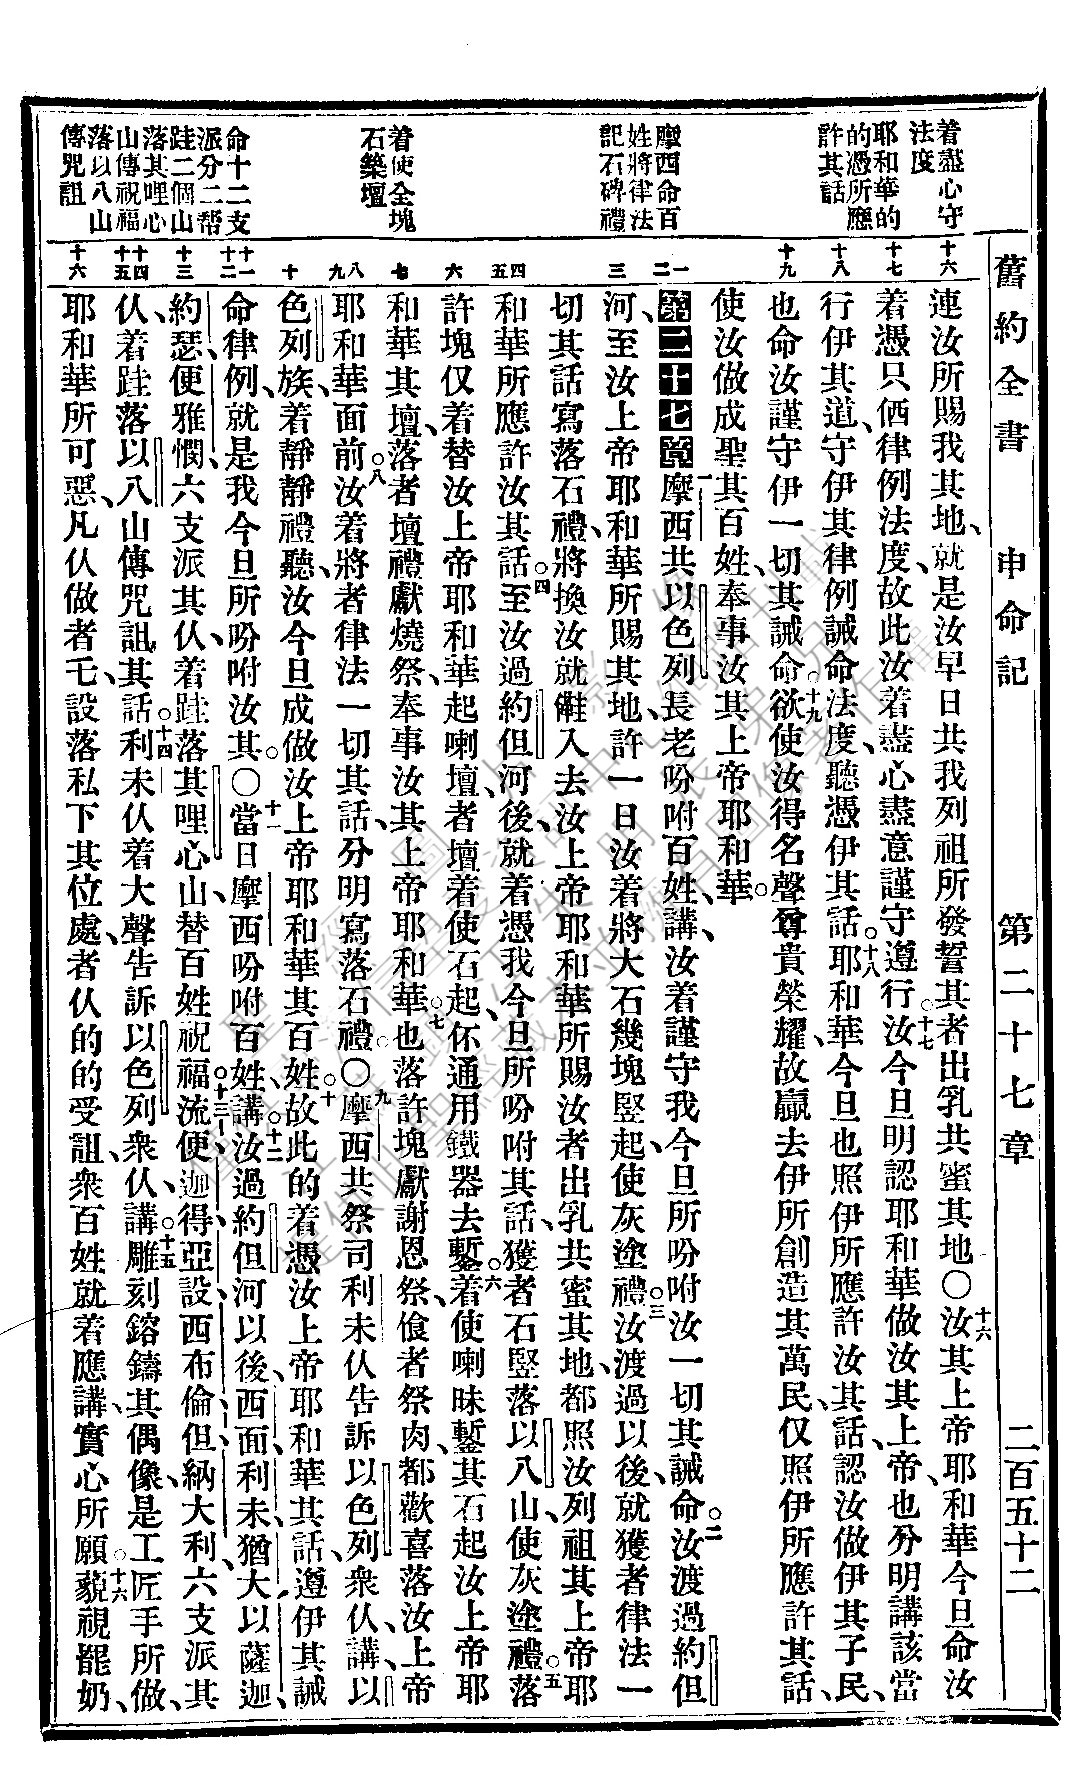 舊約全書　申命記　第二十七章　二百五十二
着盡心守
法度
耶和華的
的憑所應
許其話
摩西命百
姓將律法
記石碑禮
着使全塊
石築壇
命十二支
派分二帮
跬二個山
落其哩心
山傳祝福
落以八山
傳咒詛
十六
十七
十八
十九
一二
三
四五
六
七
八九
十
十一十二
十三
十四十五
十六
連汝所賜我其地、就是汝早日共我列祖所發誓其者出乳共蜜其地〇十六汝其上帝耶和華今旦命汝
着憑只㑚律例法度、故此汝着盡心盡意謹守遵行。十七汝今旦明認耶和華做汝其上帝、也分明講該當
行伊其道、守伊其律例誡命法度、聽憑伊其話。十八耶和華今旦也照伊所應許汝其話、認汝做伊其子民、
也命汝謹守伊一切其誡命。十九欲使汝得名聲尊貴榮耀、故贏去伊所創造其萬民、仅照伊所應許其話、
使汝做成聖其百姓、奉事汝其上帝耶和華。
第二十七章一摩西共以色列長老吩咐百姓講、汝着謹守我今旦所吩咐汝一切其誡命。二汝渡過約但
河、至汝上帝耶和華所賜其地、許一日汝着將大石幾塊竪起、使灰塗禮。三汝渡過以後、就獲者律法一
切其話寫落石禮、將換汝就能入去汝上帝耶和華所賜汝者出乳共蜜其地、都照汝列祖其上帝耶
和華所應許汝其話。四至汝過約但河後、就着憑我今旦所吩咐其話、獲者石竪落以八山、使灰塗禮。五落
許塊仅着替汝上帝耶和華起喇壇、者壇着使石起、伓通用鐵器去鏨。六着使喇昧鏨其石起汝上帝耶
和華其壇、落者壇禮獻燒祭、奉事汝其上帝耶和華。七也落許塊獻謝恩祭、食者祭肉、都歡喜落汝上帝
耶和華面前。八汝着將者律法一切其話、分明寫落石禮。〇九摩西共祭司利未仈告訴以色列衆仈講、以
色列族、着靜靜禮聽、汝今旦成做汝上帝耶和華其百姓。十故此的着憑汝上帝耶和華其話、遵伊其誡
命律例、就是我今旦所吩咐汝其。〇十一當日摩西吩咐百姓講、十二汝過約但河以後、西面、利未、猶大、以薩迦、
約瑟、便雅憫、六支派其仈、着跬落其哩心山替百姓祝福。十三流便、迦得、亞設、西布倫、但、納大利、六支派其
仈、着跬落以八山傳咒詛其話。十四利未仈着大聲告訴以色列衆仈講、十五雕刻鎔鑄其偶像、是工匠手所做、
耶和華所可惡、凡仈做者乇、設落私下其位處、者仈的的受詛、衆百姓就着應講、實心所願。十六藐視罷奶、